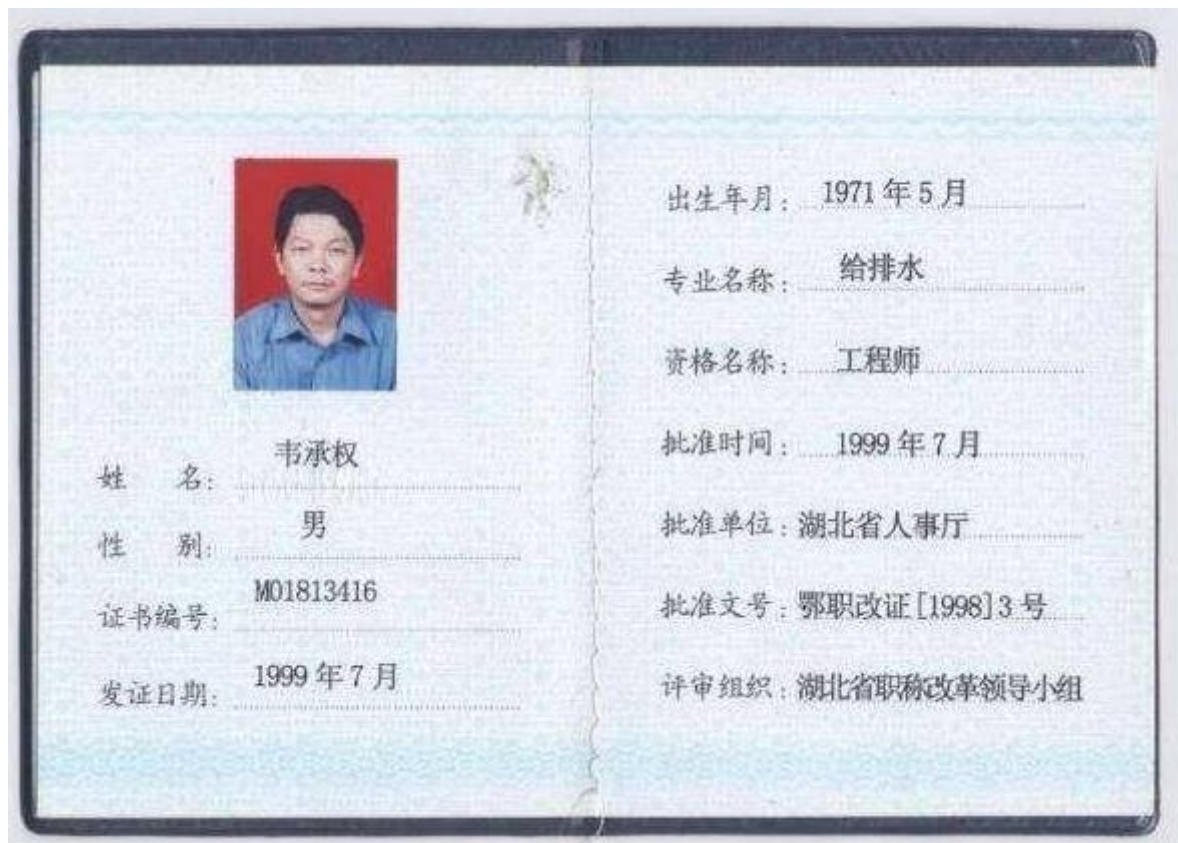 姓 名：韦承权
性 别：男
证书编号：M01813416
发证日期：1999年7月
出生年月：1971年5月
专业名称：给排水
资格名称：工程师
批准时间：1999年7月
批准单位：湖北省人事厅
批准文号：鄂职改证[1998]3号
评审组织：湖北省职称改革领导小组